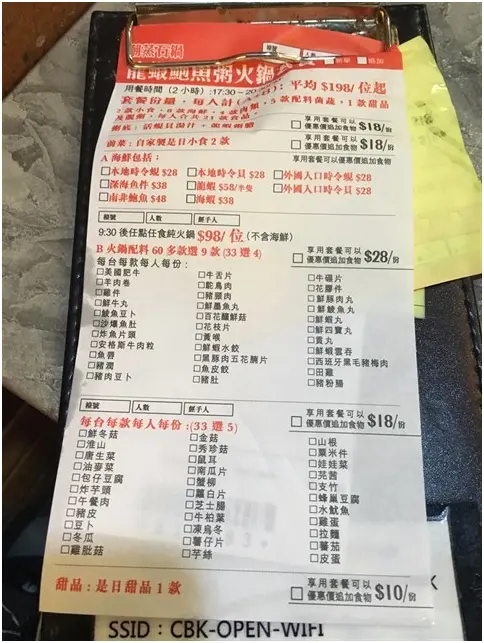 蒸石鍋
龍蝦鮑魚粥火鍋
用餐時間 (2 小時) :17:30～20
平均 $198/ 位起
套餐份量，每人計
5 款配料菌蔬，1 款甜品
享用套餐可以
優惠價追加食物 $18/份
前菜：自家製是日小食 2 款
享用套餐可以
優惠價追加食物 $18/份
A 海鮮包括：
享用套餐可以優惠價追加食物
□本地時令蜆 $28 □本地時令貝 $28 □外國入口時令蜆 $28
□深海魚件 $38 □龍蝦 $58/半隻 □外國入口時令貝 $28
□南非鮑魚 $48 □海蝦 $38
檯號 人數 經手人
9:30 後任點任食純火鍋 $98/ 位 (不含海鮮)
B 火鍋配料 60 多款選 9 款 (33 選 4)
享用套餐可以
優惠價追加食物 $28/份
每台每款每人每份：
□美國肥牛 □牛舌片 □牛𦟌片
□羊肉卷 □鴕鳥肉 □花膠件
□雞件 □豬頸肉 □鮮豚肉丸
□鮮牛丸 □鮮墨魚丸 □鮮鯪魚丸
□鯪魚豆卜 □百花釀鮮菇 □鮮蝦丸
□沙爆魚肚 □花枝片 □鮮四寶丸
□炸魚片頭 □黃喉 □貢丸
□安格斯牛肉粒 □鮮蝦水餃 □鮮蝦雲吞
□魚唇 □黑豚肉五花腩片 □西班牙黑毛豬梅肉
□豬潤 □魚皮餃 □田雞
□豬肉豆卜 □豬肚 □豬粉腸
檯號 人數 經手人
每台每款每人每份:(33 選 5)
享用套餐可以
優惠價追加食物 $18/份
□鮮冬菇 □金菇 □山根
□淮山 □秀珍菇 □粟米件
□唐生菜 □鼠耳 □娃娃菜
□油麥菜 □南瓜片 □芫茜
□包仔豆腐 □蟹柳 □支竹
□炸芋頭 □蘿白片 □蜂巢豆腐
□午餐肉 □芝士腸 □水魷魚
□豬皮 □牛柏葉 □雞蛋
□豆卜 □凍烏冬 □拉麵
□冬瓜 □薯仔片 □蕃茄
□雞肶菇 □芋絲 □皮蛋
甜品：是日甜品 1 款
享用套餐可以
優惠價追加食物 $10/份
K
SSID：CBK-OPEN-WIFI